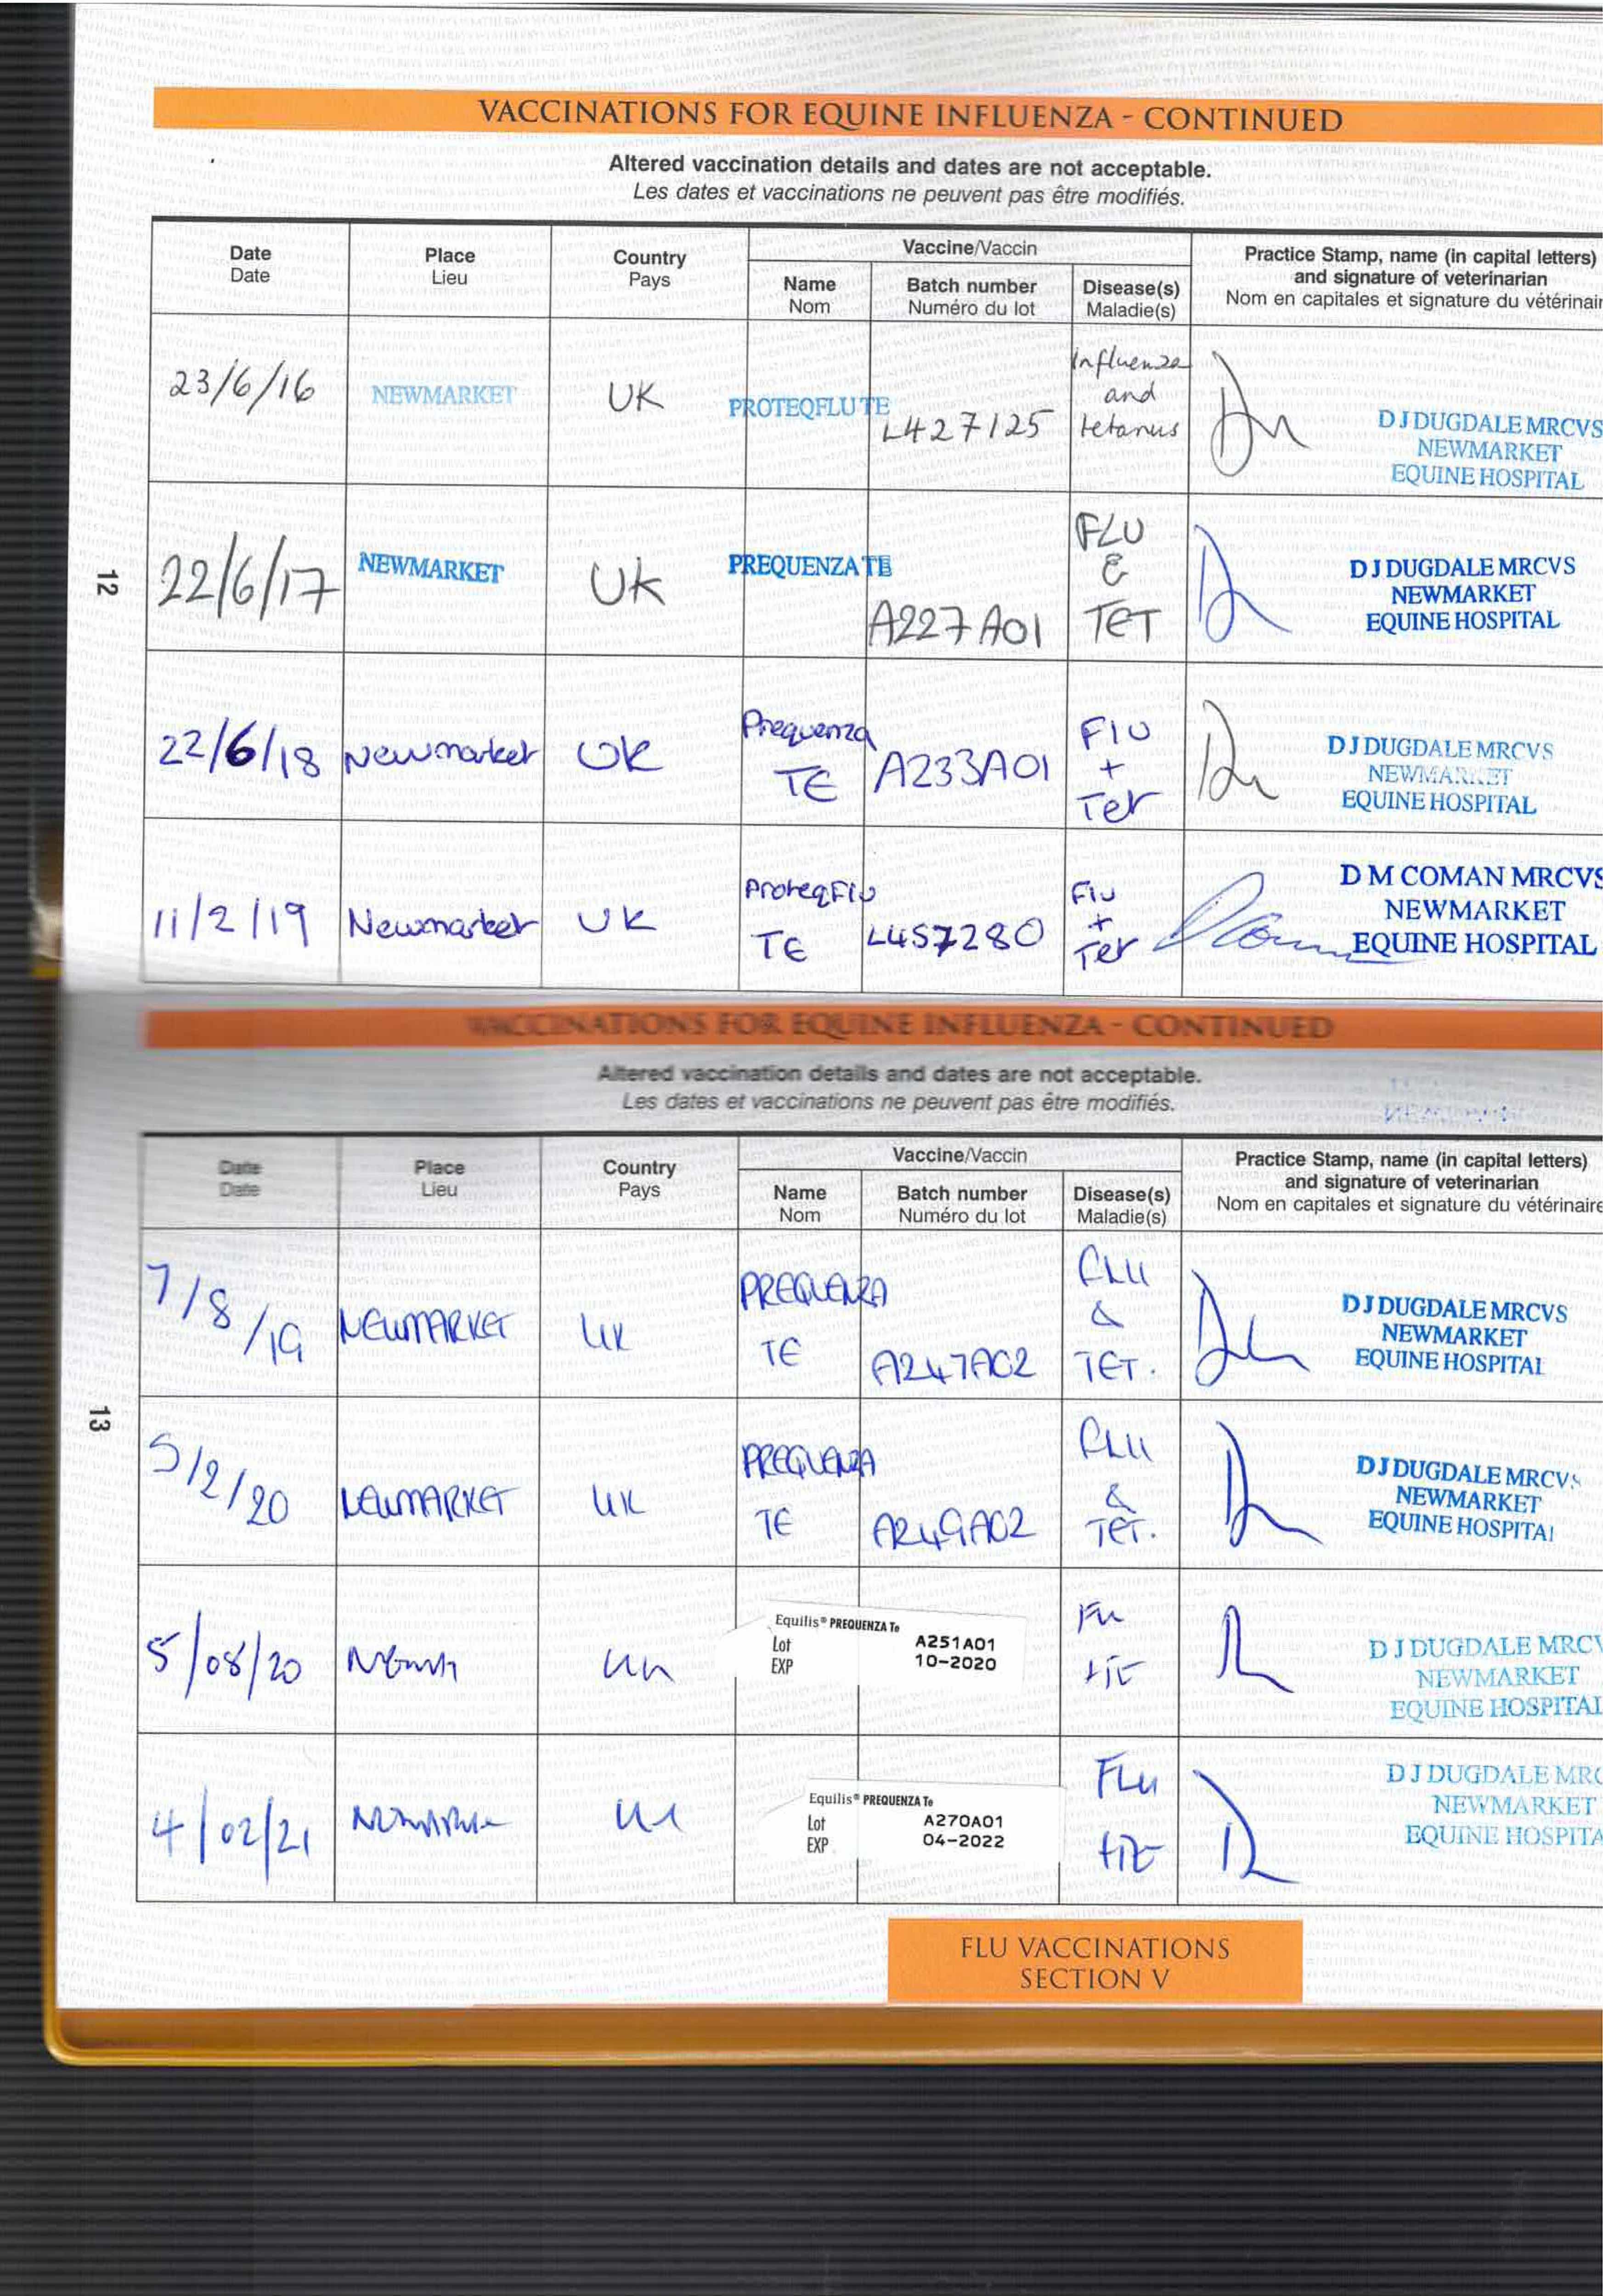 VACCINATIONS FOR EQUINE INFLUENZA - CONTINUED
Altered vaccination details and dates are not acceptable.
Les dates et vaccinations ne peuvent pas être modifiés.
Date
Date
Place
Lieu
Country
Pays
Vaccine/Vaccin
Name
Nom
Batch number
Numéro du lot
Disease(s)
Maladie(s)
Practice Stamp, name (in capital letters)
and signature of veterinarian
Nom en capitales et signature du vétérinair
23/6/16
NEWMARKET
UK
PROTEQFLUTE
L427125
Influenza
and
tetanus
D J DUGDALE MRCVS
NEWMARKET
EQUINE HOSPITAL
12
22/6/17
NEWMARKET
UK
PREQUENZA TE
A227A01
FLU
&
TET
D J DUGDALE MRCVS
NEWMARKET
EQUINE HOSPITAL
22/6/18
Newmarket
UK
Prequenza
TE
A233A01
Flu
+
Tet
D J DUGDALE MRCVS
NEWMARKET
EQUINE HOSPITAL
11/2/19
Newmarket
UK
ProteqFlu
TE
L457280
Flu
+
Tet
D M COMAN MRCVS
NEWMARKET
EQUINE HOSPITAL
VACCINATIONS FOR EQUINE INFLUENZA - CONTINUED
Altered vaccination details and dates are not acceptable.
Les dates et vaccinations ne peuvent pas être modifiés.
Date
Date
Place
Lieu
Country
Pays
Vaccine/Vaccin
Name
Nom
Batch number
Numéro du lot
Disease(s)
Maladie(s)
Practice Stamp, name (in capital letters)
and signature of veterinarian
Nom en capitales et signature du vétérinaire
7/8/19
NEWMARKET
UK
PREQUENZA
TE
A247A02
FLU
&
TET.
D J DUGDALE MRCVS
NEWMARKET
EQUINE HOSPITAL
13
5/2/20
NEWMARKET
UK
PREQUENZA
TE
A249A02
FLU
&
TET.
D J DUGDALE MRCVS
NEWMARKET
EQUINE HOSPITAL
5/08/20
UK
Equilis® PREQUENZA Te
Lot A251A01
EXP 10-2020
D J DUGDALE MRCV
NEWMARKET
EQUINE HOSPITAL
4/02/21
Equilis® PREQUENZA Te
Lot A270A01
EXP 04-2022
FLu
D J DUGDALE MRC
NEWMARKET
EQUINE HOSPITA
FLU VACCINATIONS
SECTION V